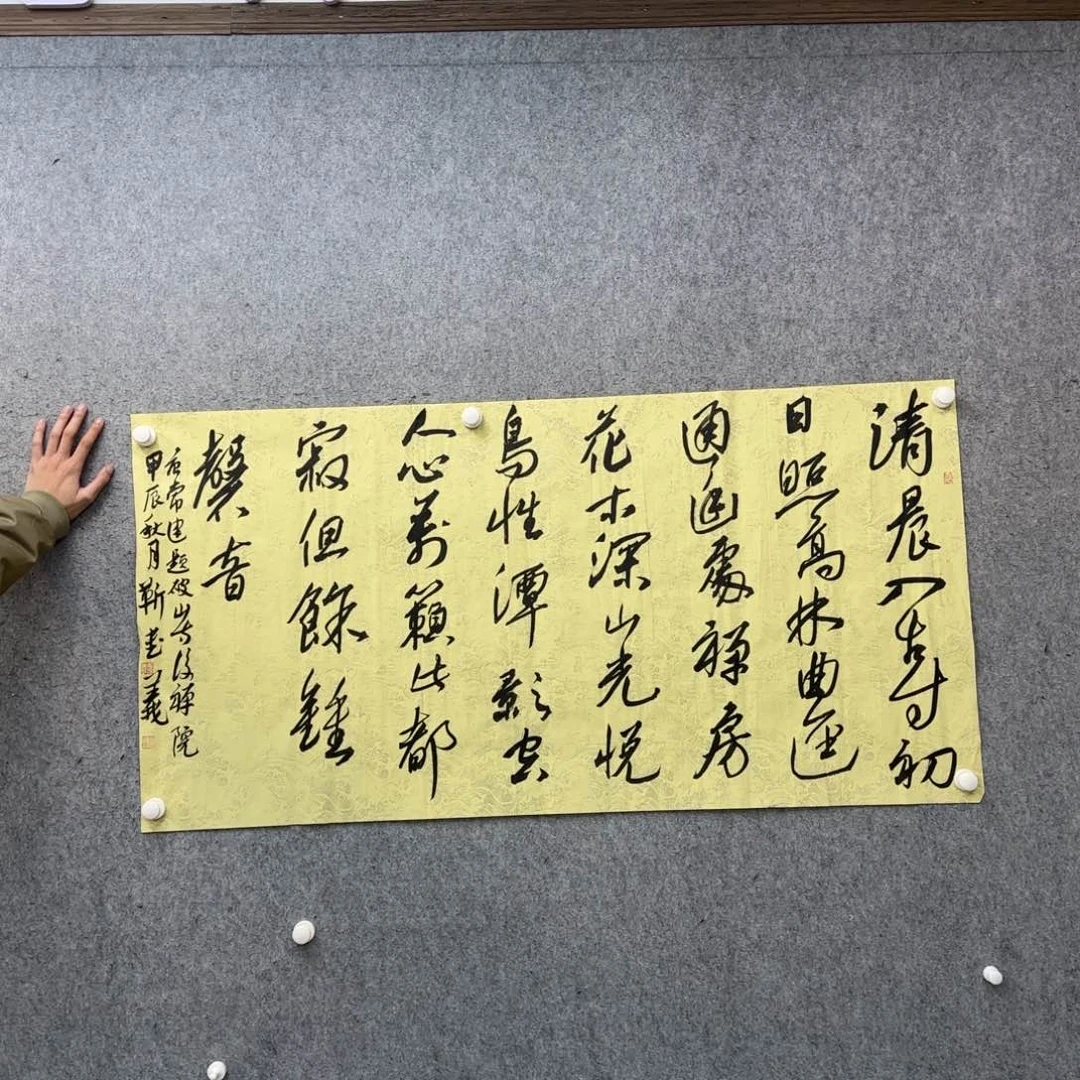 清晨入古寺初
日照高林曲逕
通幽處禅房
花木深山光悦
鳥性潭影空
人心萬籟此都
寂但餘鍾
磬音
右常建題破山寺後禅院
甲辰秋月靳書義